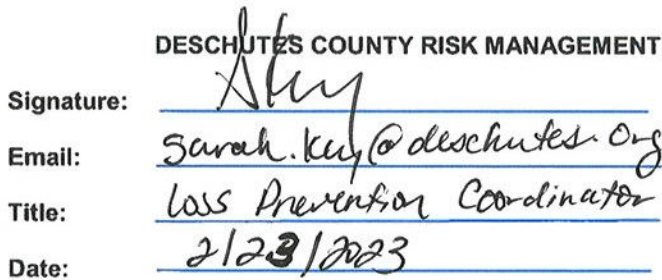 DESCHUTES COUNTY RISK MANAGEMENT
Signature:
Email: sarah.kuy@deschutes.org
Title: Loss Prevention Coordinator
Date: 2/23/2023